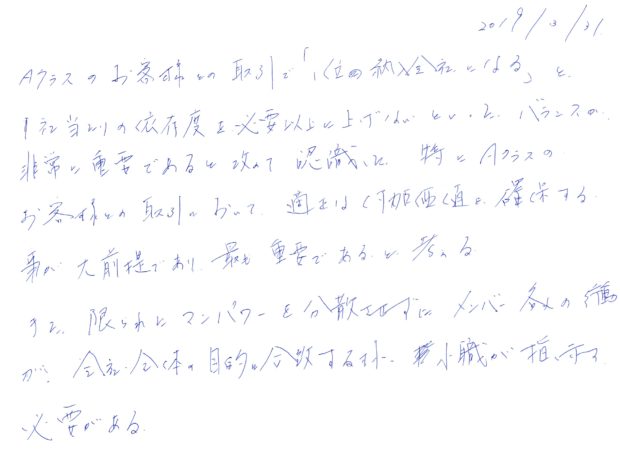 2019/3/31
Aクラスのお客様との取引で「1位の納入会社になる」と、
1社当りの依存度を必要以上に上げないといった、バランスが
非常に重要であると改めて認識した。特にAクラスの
お客様との取引において、適正な付加価値を確保する
事が大前提であり、最も重要であると考える
また、限られたマンパワーを分散させずに、メンバー各人の働
が、会社全体の目的に合致する様、職が指示す
必要がある。